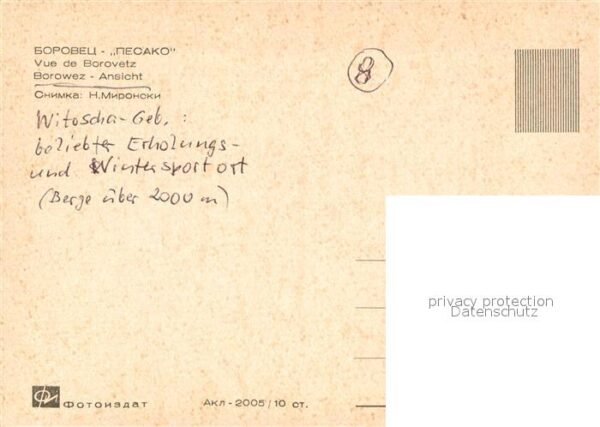 БОРОВЕЦ - „ПЕСАКО"
Vue de Borovetz
Borowez - Ansicht
Снимка: Н. Миронски
8
Witoscha-Geb. :
beliebter Erholungs-
und Wintersportort
(Berge über 2000 m)
privacy protection
Datenschutz
Фотоиздат
Акл - 2005/10 ст.